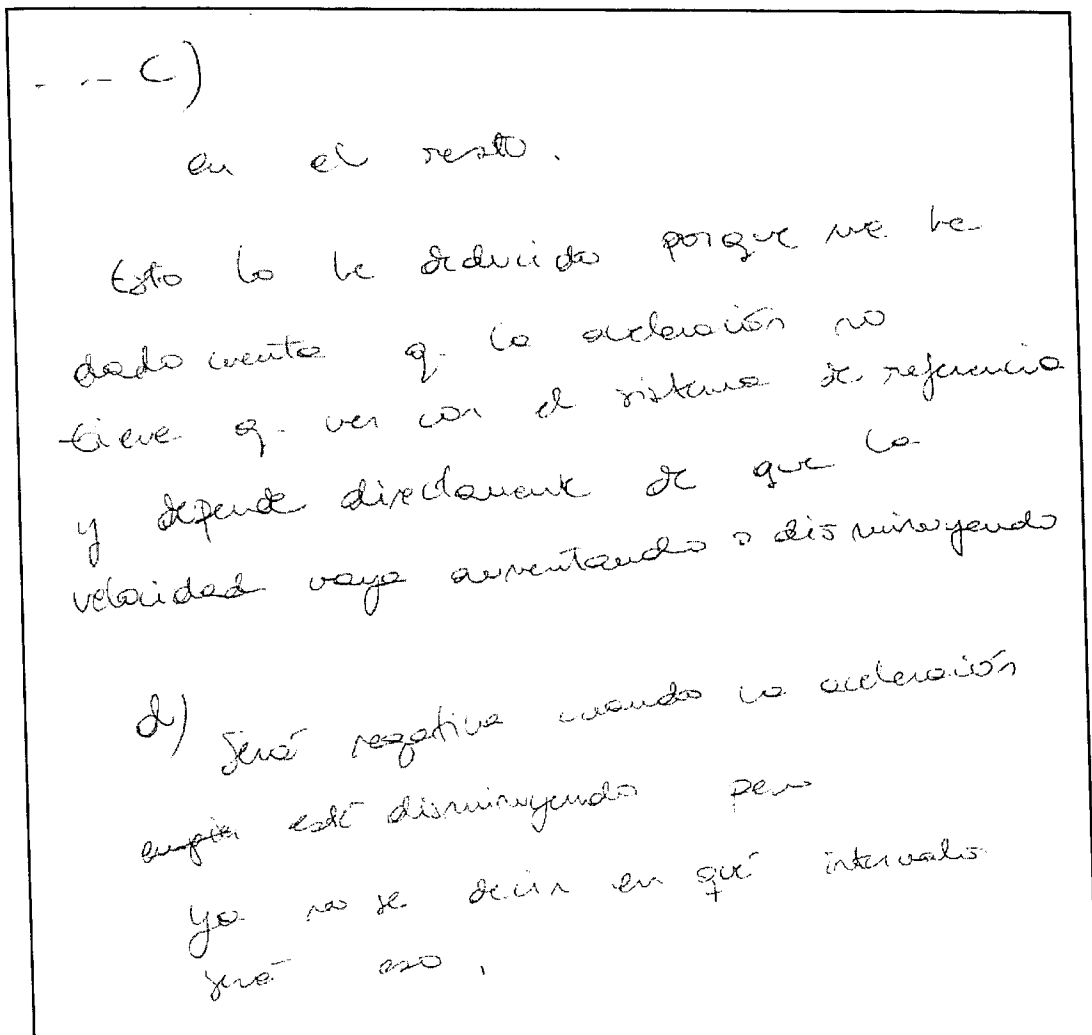 - -- C)
en el resto.
Esto lo he deducido porque me he
dado cuenta q. la aceleración no
tieve q. ver con el sistema de referencia
y depende directamente de que la
velocidad vaya aumentando o disminuyendo
d) Será negativa cuando la aceleración
esté disminuyendo pero
ya no se decir en qué intervalo
será eso.